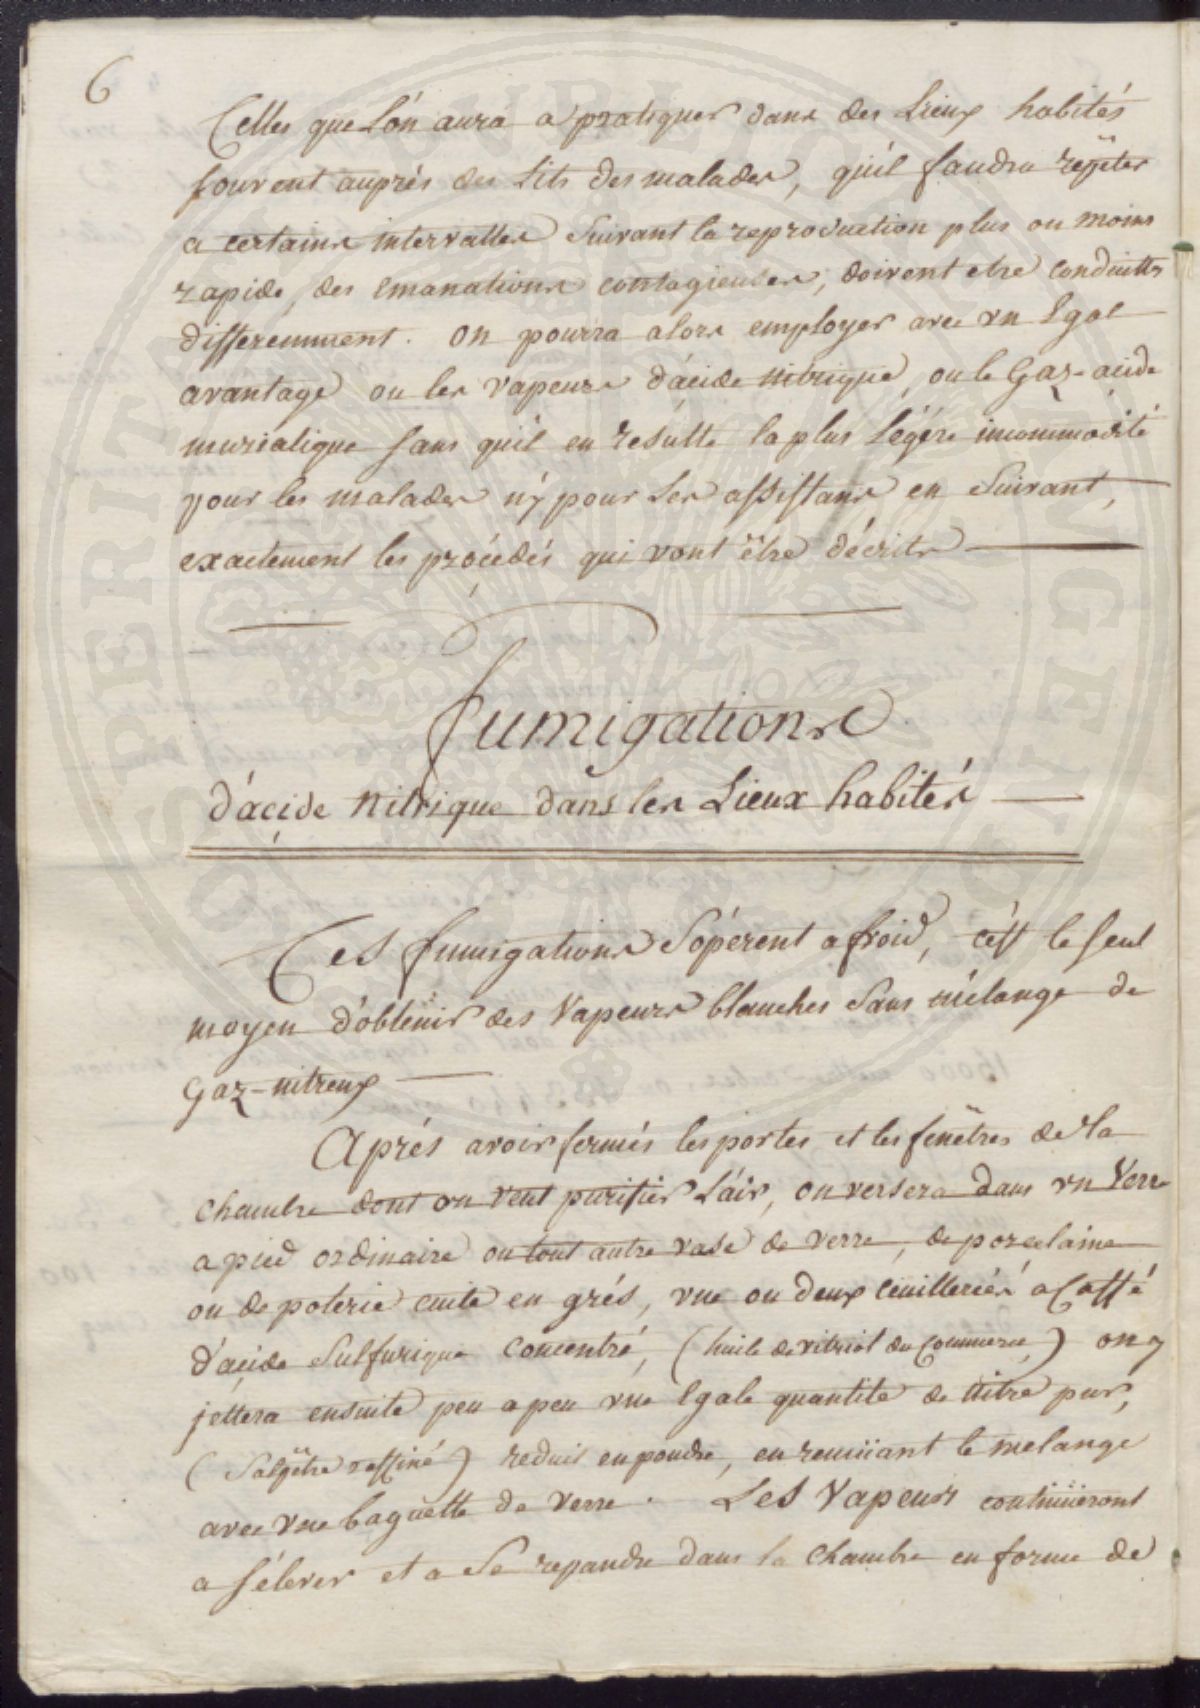 6
Celles que L'on aura a pratiquer dans des Lieux habités
souvent auprès des Lits des malades, qu'il faudra repéter
a certains intervalles Suivant la reproduction plus ou moins
rapide, des emanations contagieuses, doivent etre conduittes
differemment. on pourra alors employer avec vn Egal
avantage ou les vapeurs d'acide nitrique, ou le Gaz-acide
muriatique sans quil en resulte la plus Légére incommodité
pour les malades n'y pour Les assistans en Suivant,
exactement les procédés qui vont être décrits
fumigations
d'acide nitrique dans les Lieux habités
Ces fumigations S'opérent a froid, c'est le seul
moyen d'obtenir des Vapeurs blanches Sans mélange de
Gaz-nitreux
Après avoir fermés les portes et les fenêtres de la
chambre dont on veut purifier L'air, on versera dans vn Verre
a pied ordinaire ou tout autre vase de verre, de porcelaine
ou de poterie cuite en grés, vne ou deux ceuilleriées a Caffé
d'acide Sulfurique concentré, (huile de vitriol du Commerce) on y
jettera ensuite peu a peu vne Egale quantité de nitre pur,
(Salpêtre raffiné) reduit en poudre, en remüant le melange
avec vne baguette de verre. LeS Vapeurs continüeront
a s'élever et a Se repandre dans la chambre en forme de